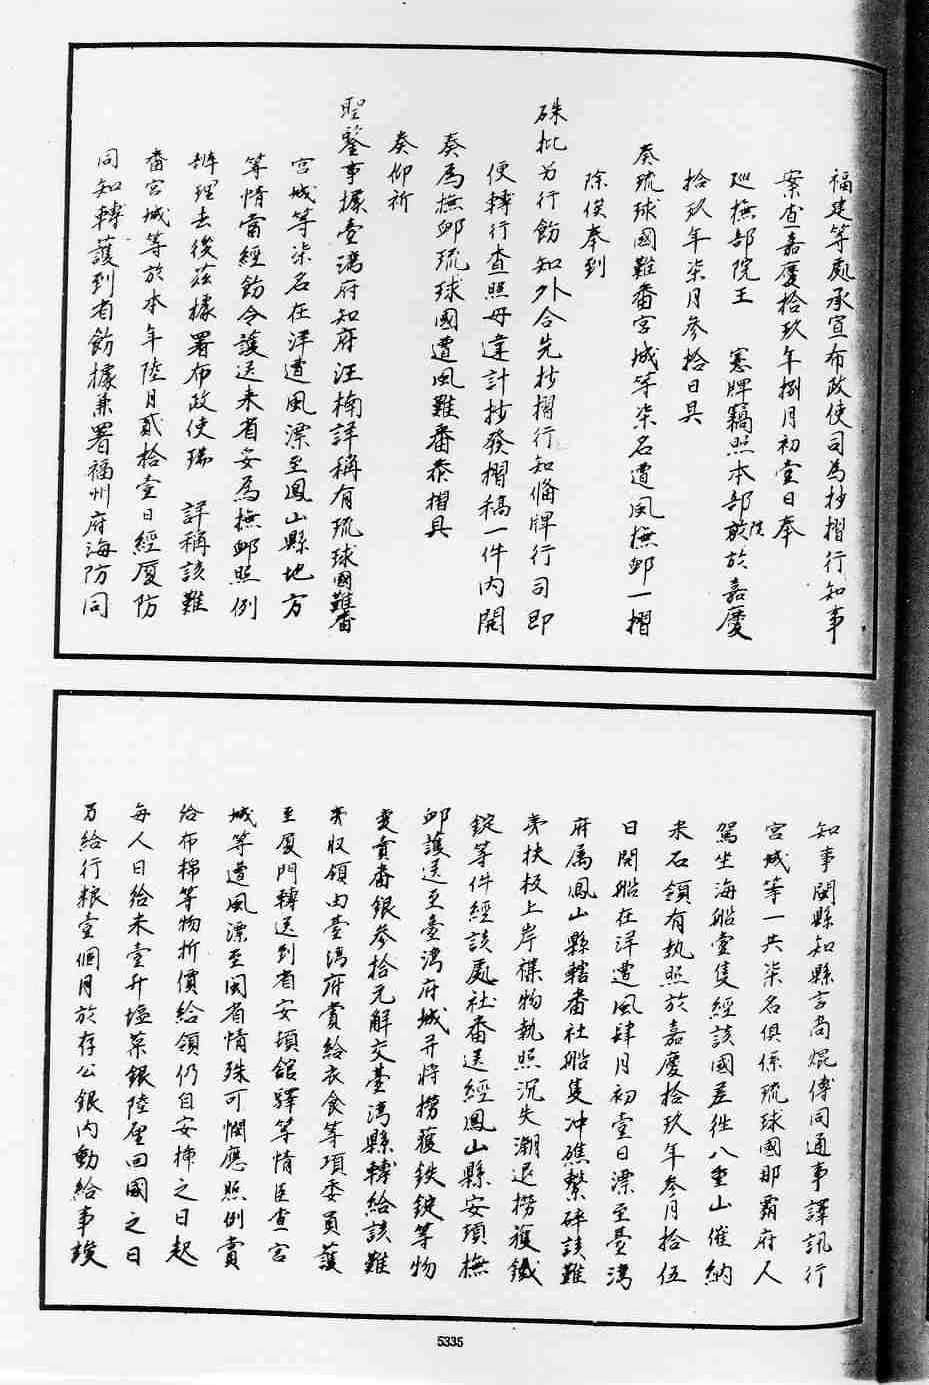 福建等處承宣布政使司為抄摺行知事
案查嘉慶拾玖年捌月初壹日奉
廵撫部院王　憲牌竊照本部院於嘉慶
拾玖年柒月參拾日具
奏琉球國難番宮城等柒名遭風撫卹一摺
除俟奉到
硃批另行飭知外合先抄摺行知俻牌行司即
便轉行查照毋違計抄發摺稿一件內開
奏為撫卹琉球國遭風難番恭摺具
奏仰祈
聖鑒事據臺湾府知府汪楠詳稱有琉球國難番
宮城等柒名在洋遭風漂至鳳山縣地方
等情當經飭令護送来省妥為撫卹照例
辦理去後茲據署布政使瑞　詳稱該難
番宮城等於本年陸月貳拾壹日經厦防
同知轉護到省飭據兼署福州府海防同
知事閩縣知縣言尚焜傳同通事譯訊行
宮城等一共柒名俱係琉球國那霸府人
駕坐海船壹隻經該國差徃八重山催納
米石領有执照於嘉慶拾玖年叁月拾伍
日開船在洋遭風肆月初壹日漂至臺湾
府属鳳山縣轄番社船隻冲礁擊碎該難
夷扶板上岸襍物執照沉失潮退撈獲鐵
錠等件經該處社番送經鳳山縣安頓撫
卹護送至臺湾府城并将撈獲鉄錠等物
変賣番銀參拾元解交臺湾縣轉給該難
夷収領由臺湾府賞給衣食等項委員護
至厦門轉送到省安頓舘驛等情臣查宮
城等遭風漂至閩省情殊可憫應照例賞
給布棉等物折價給領仍自安揷之日起
每人日給米壹升塩菜銀陸厘回國之日
另給行粮壹個月於存公銀內動給事竣
5335